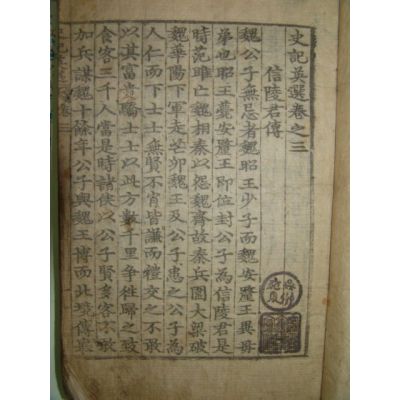 史記英選卷之三
信陵君傳
魏公子無忌者魏昭王少子而魏安釐王異母
弟也昭王薨安釐王即位封公子為信陵君是
時范雎亡魏相秦以怨魏齊故秦兵圍大梁破
魏華陽下軍走芒卯魏王及公子患之公子為
人仁而下士士無賢不肖皆謙而禮交之不敢
以其富貴驕士士以此方數千里爭往歸之致
食客三千人當是時諸侯以公子賢多客不敢
加兵謀魏十餘年公子與魏王博而北境傳